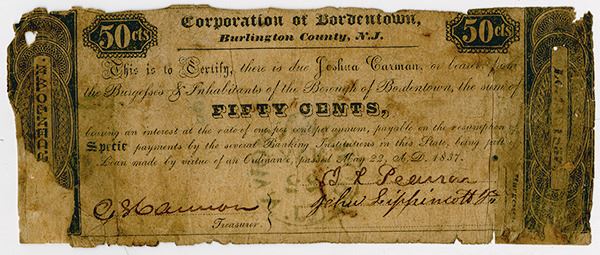 Corporation of Bordentown,
50 cts
50 cts
Burlington County, N.J.
This is to Certify, there is due Joshua Carman, or bearer, from
the Burgesses & Inhabitants of the Borough of Bordentown, the sum of
FIFTY CENTS,
bearing an interest at the rate of one per cent per annum, payable on the resumption of
Specie payments by the several Banking Institutions in this State, being part of a
Loan made by virtue of an Ordinance, passed May 22, A.D. 1837.
John Lippincott
Treasurer.